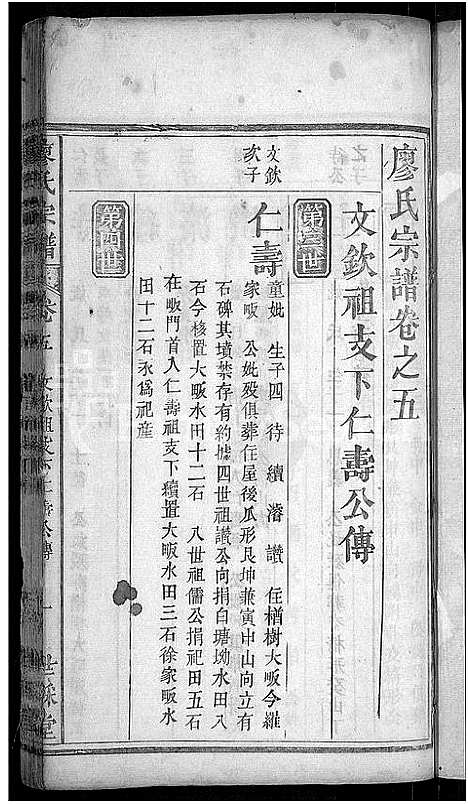 廖氏宗譜卷之五
文欽祖支下仁壽公傳
第叁世
文欽次子
仁壽
童妣 生子四 待 續 濬 讚 住槽樹大畈今羅
家畈 公妣歿俱葬住屋後瓜形艮坤兼寅申山向立有
石碑其墳禁存有約據四世祖讚公向捐白塘坳水田八
石今核置大畈水田十二石 八世祖儒公捐祀田五石
在畈門首入仁壽祖支下續置大畈水田三石徐家畈水
田十二石永爲祀産
第四世
廖氏宗譜
卷五 文欽祖支下仁壽公傳
一
世綵堂